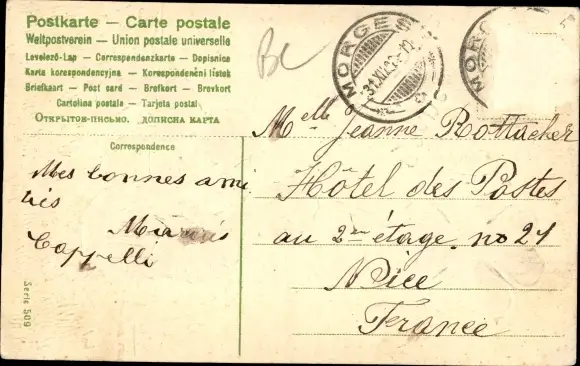 Postkarte — Carte postale
Weltpostverein — Union postale universelle
Levelező-Lap — Correspondenzkarte — Dopisnice
Karta korespondencyjna — Korespondenční lístek
Briefkaart — Post card — Brefkort — Brevkort
Cartolina postale — Tarjeta postal
Открытое-письмо. дописна карта
Correspondence
BC
MORGES
31.XII.
MOR
Melle Jeanne Rottacker
Hôtel des Postes
au 2me étage. no 21
Nice
France
Mes bonnes ami
tiés
Cappelli
Serie 509